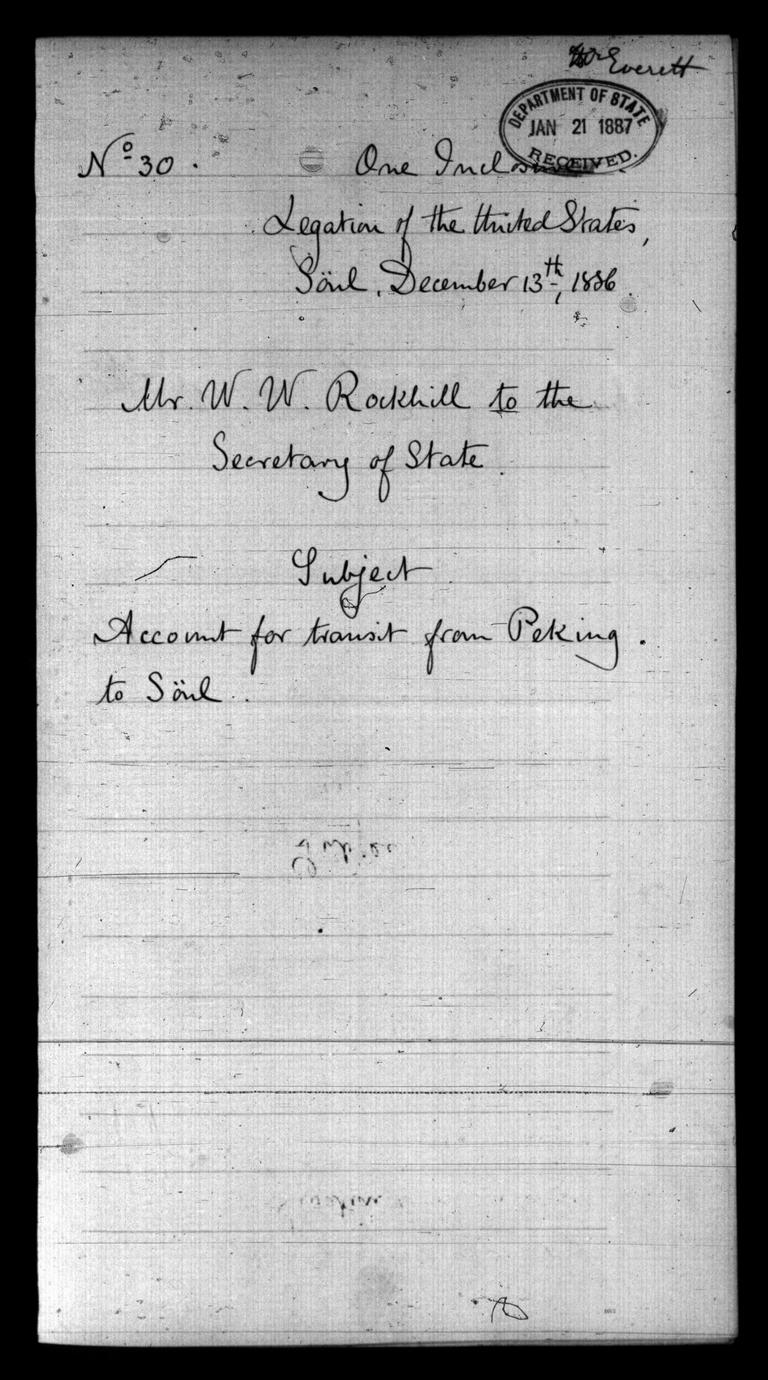 Mr Everett
DEPARTMENT OF STATE
JAN 21 1887
RECEIVED.
Nº 30. One Inclosure.
Legation of the United States,
Söul, December 13th, 1886.
Mr. W. W. Rockhill to the
Secretary of State.
Subject
Account for transit from Peking.
to Söul.